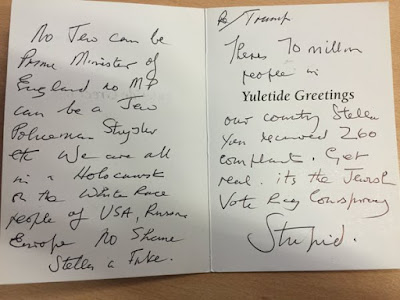 No Jew can be
Prime Minister of
England no MP
can be a Jew
Policeman
etc We are all
in a Holocaust
on the White Race
people of USA, Russia
Europe No Shame
Stella a Fake.
Trump
Theres 70 million
people in
Yuletide Greetings
our country Stella
You received 260
complaint. Get
real. its the Jewish
Vote Rag Conspiracy
Stupid.